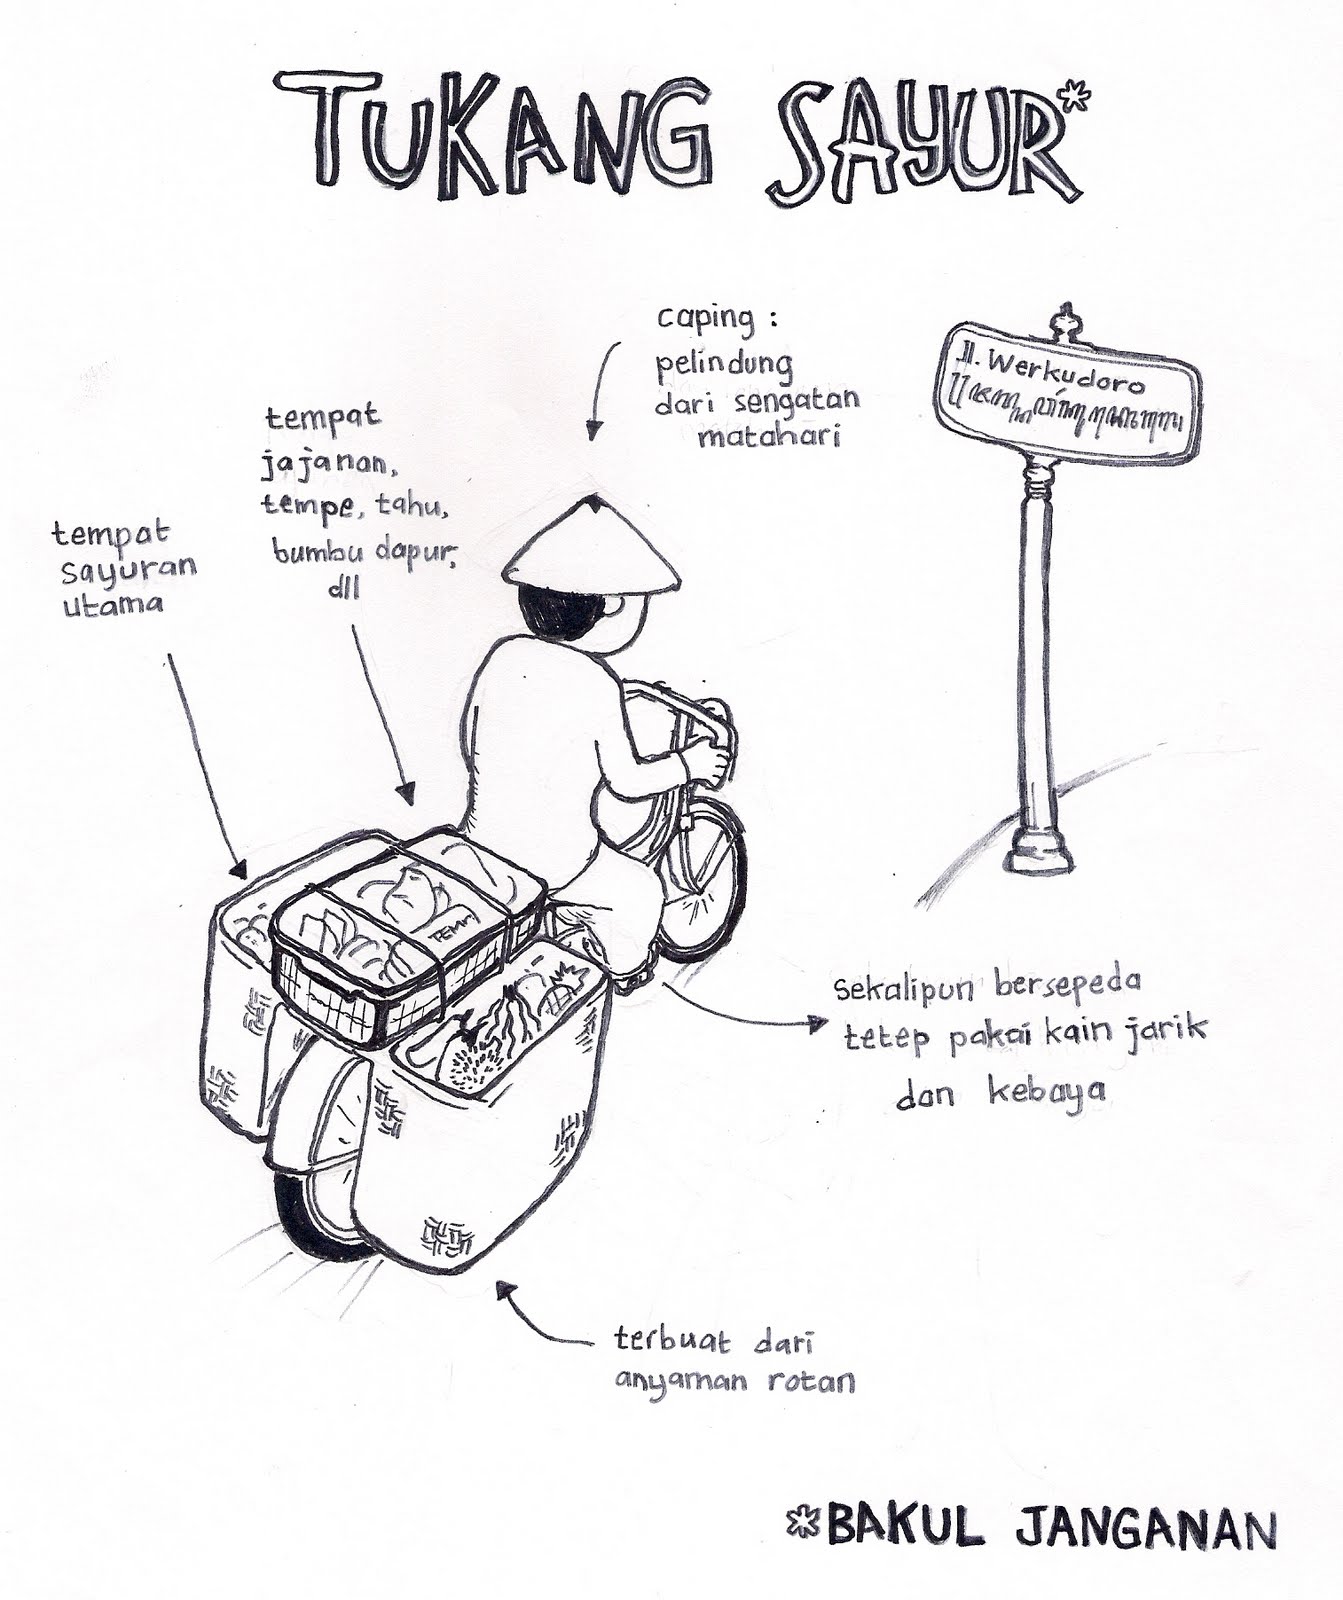 TUKANG SAYUR*
caping :
pelindung
dari sengatan
matahari
Jl. Werkudoro
tempat
jajanan,
tempe, tahu,
bumbu dapur,
dll
tempat
sayuran
utama
TEMPE
sekalipun bersepeda
tetep pakai kain jarik
dan kebaya
terbuat dari
anyaman rotan
*BAKUL JANGANAN